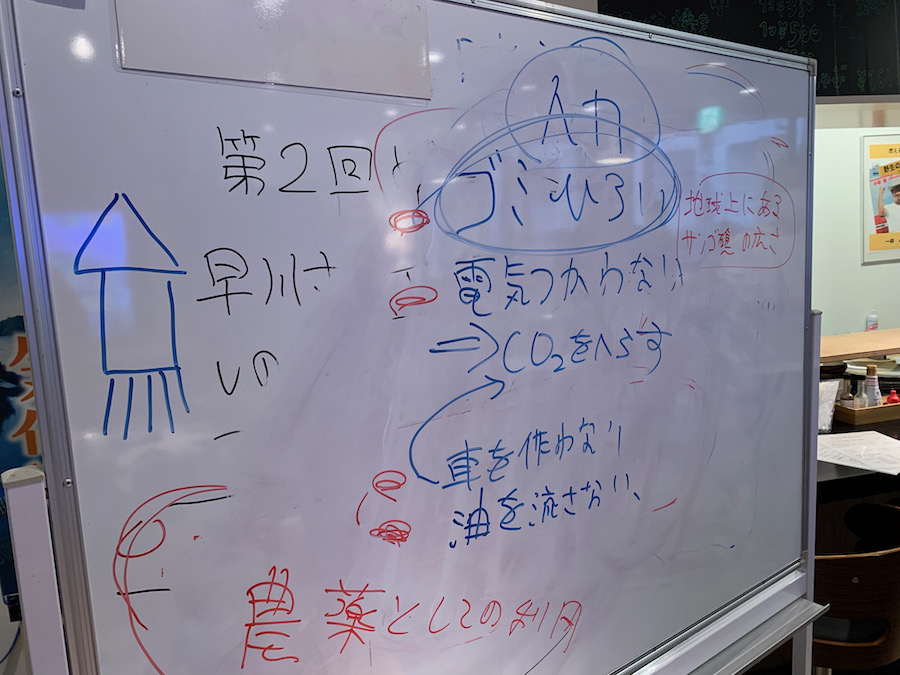 第2回
入力
ゴミひろい
地球上にある
サンゴ礁の広さ
早川さ
電気つかわない
⇒CO₂をへらす
いの
車を作わない
油を流さない、
農薬としての利用